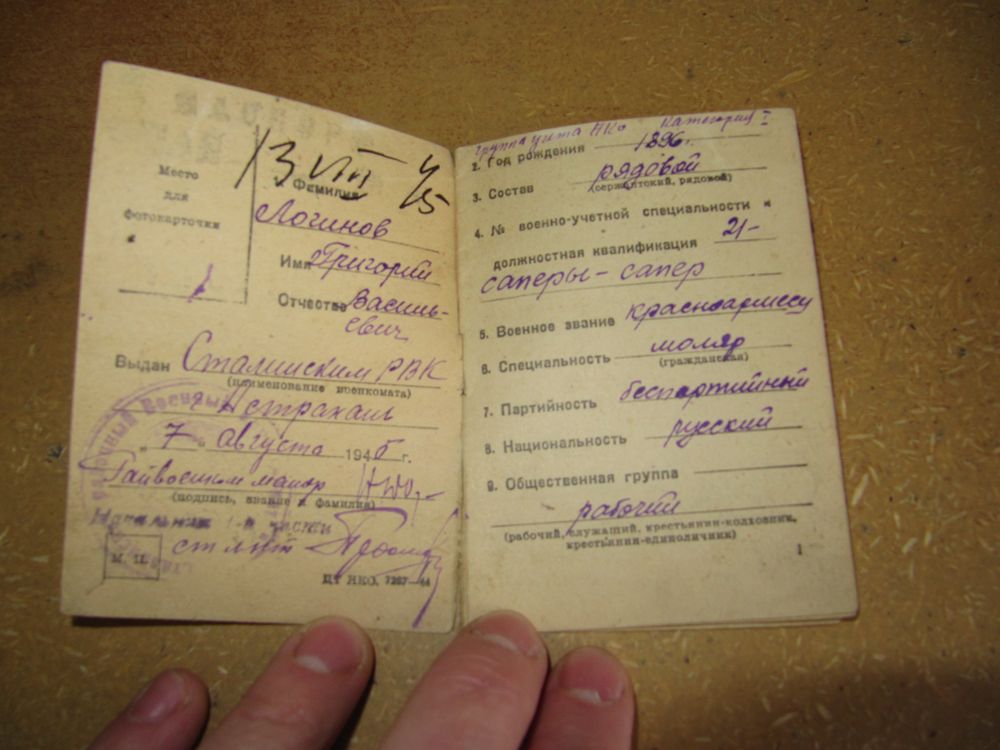 13 VIII 45
Место
для
фотокарточки
Фамилия
Логинов
Имя Григорий
Отчество Василь-
евич
Выдан Сталинским РВК
(наименование военкомата)
г Астрахали
"7" августа 1945 г.
Райвоенком майор
(подпись, звание и фамилия)
Начальник 1-й части
ст л-нт
М. П.
ЦТ НКО. 3287—44
Группа учета НКо Категория I
2. Год рождения 1896 г.
3. Состав рядовой
(сержантский, рядовой)
4. № военно-учетной специальности и
должностная квалификация 21-
саперы - сапер
5. Военное звание красноармеец
6. Специальность маляр
(гражданская)
7. Партийность беспартийный
8. Национальность русский
9. Общественная группа
рабочий
(рабочий, служащий, крестьянин-колхозник,
крестьянин-единоличник)
1